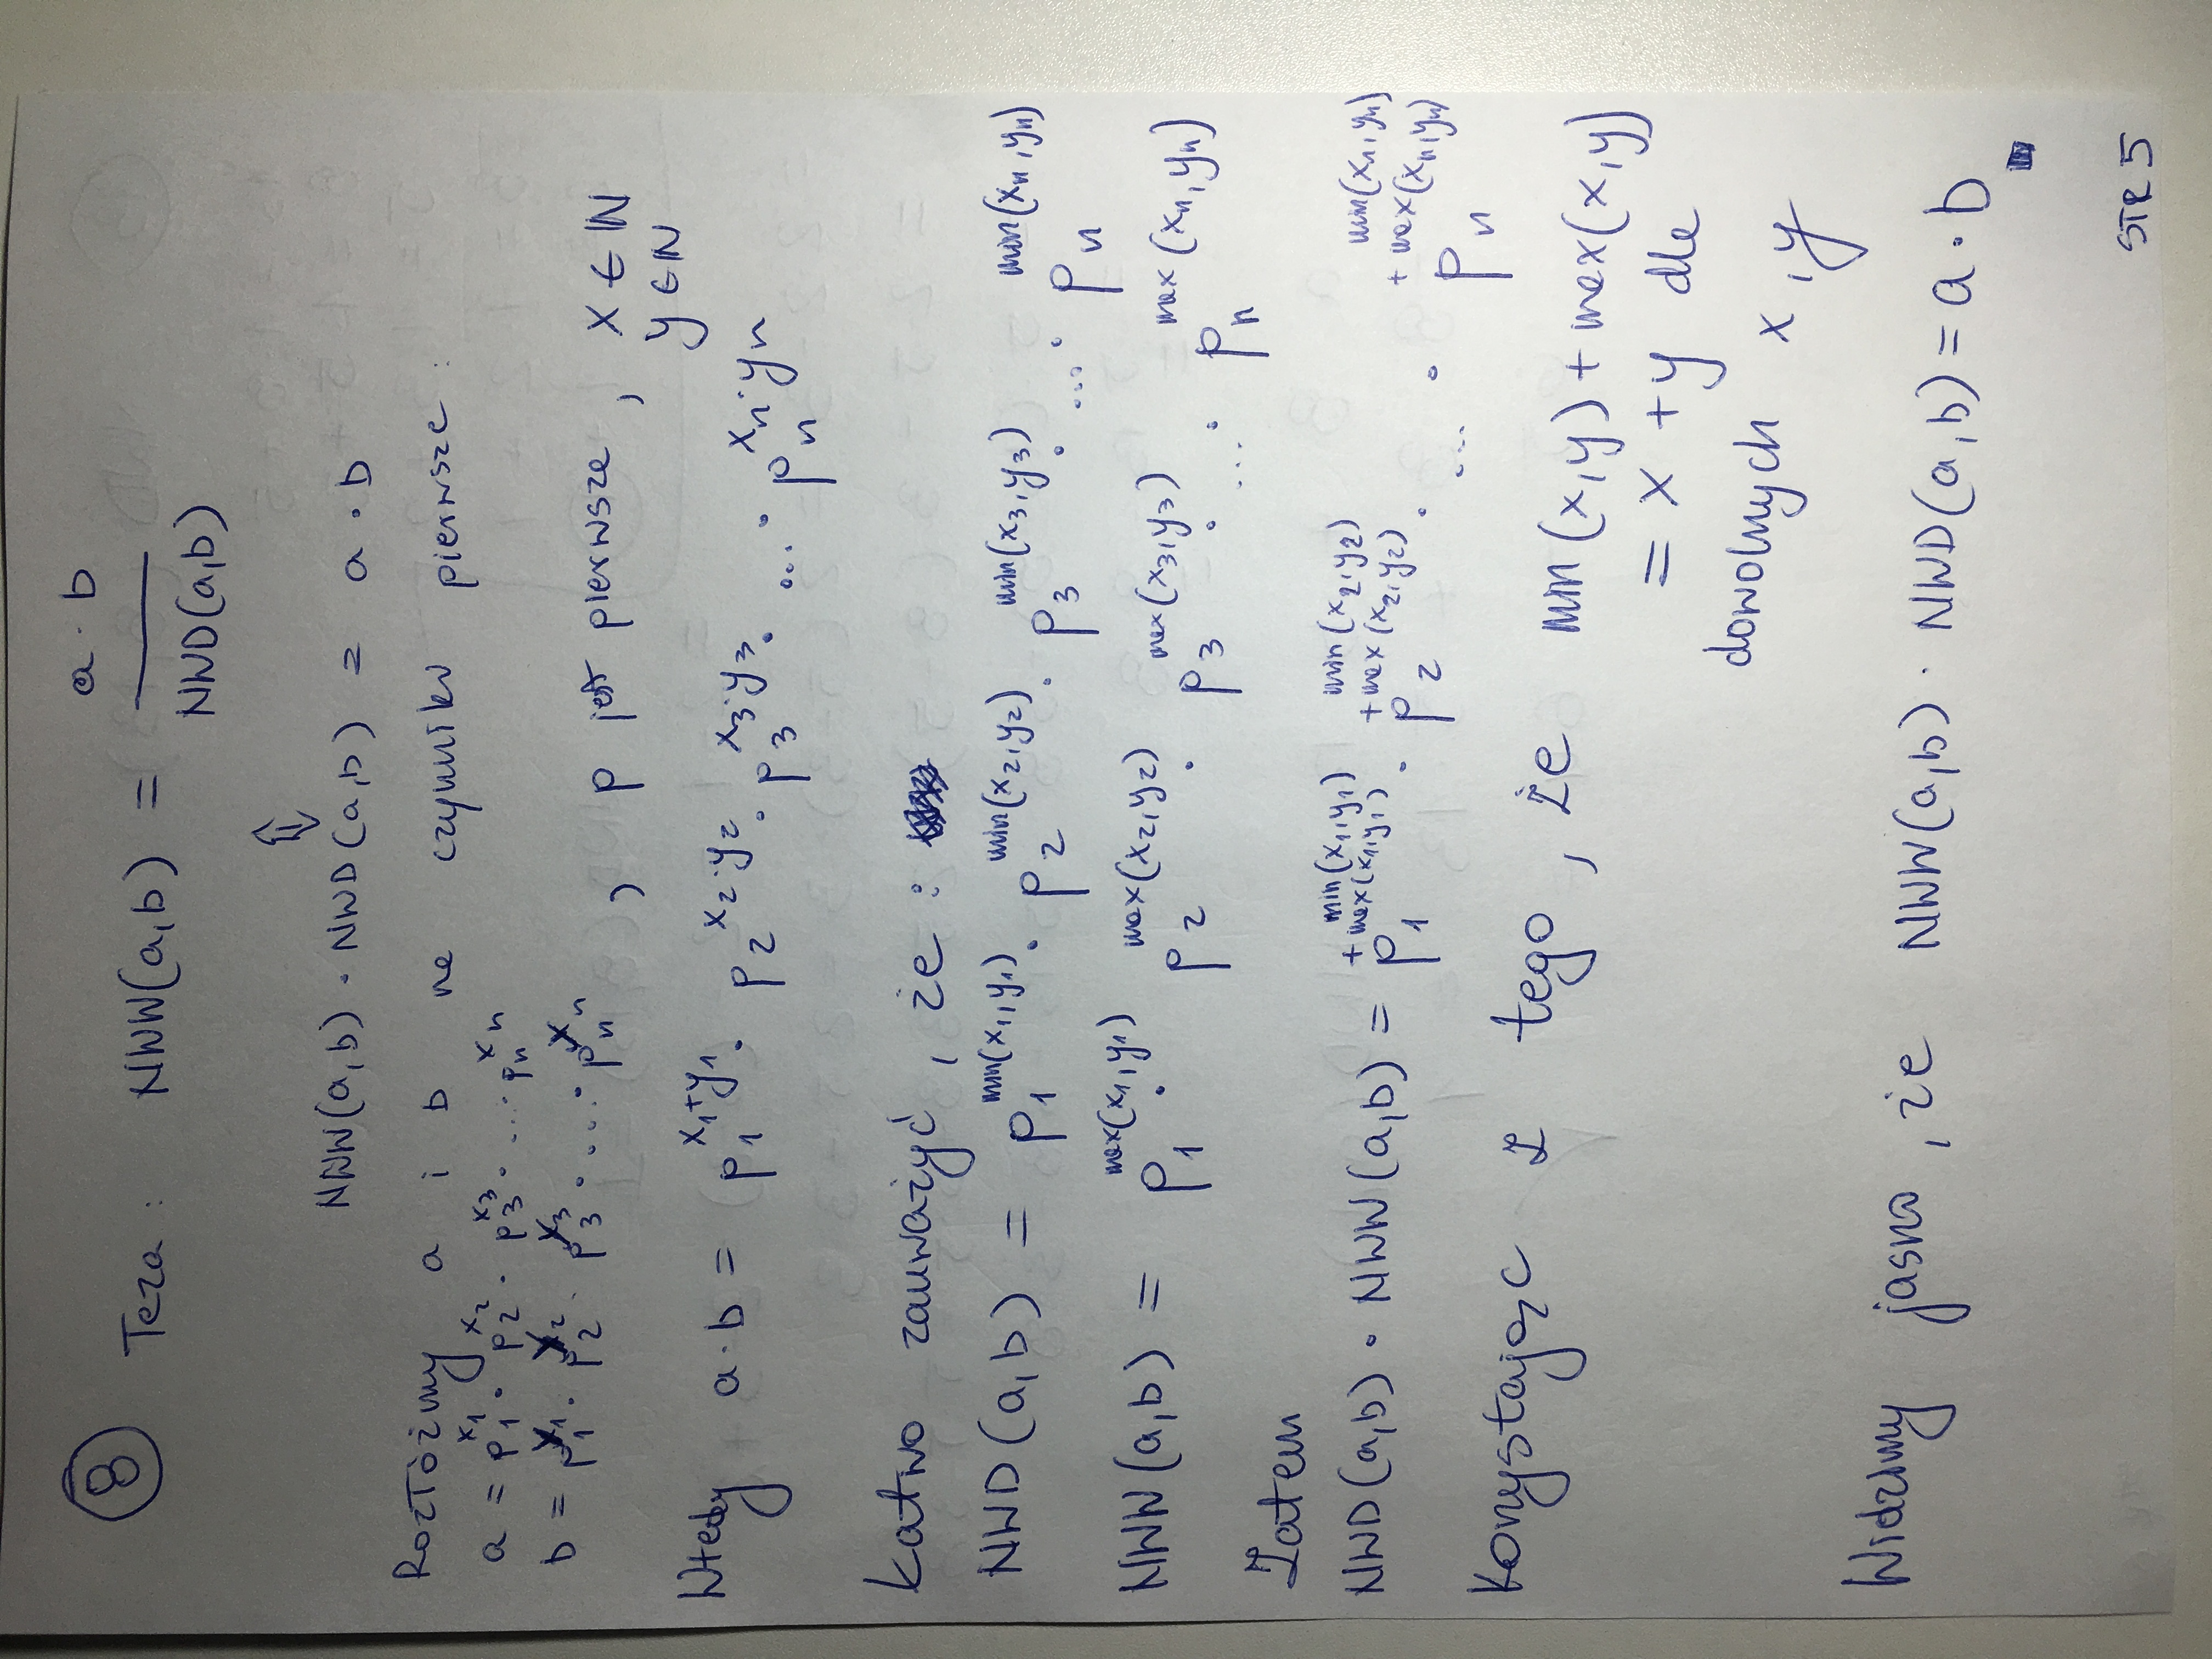 8
Teza: NWW(a,b) = a · b / NWD(a,b)
⇕
NWW(a,b) · NWD(a,b) = a · b
Rozłóżmy a i b na czynniki pierwsze:
a = p₁^x₁ · p₂^x₂ · p₃^x₃ · ... pₙ^xₙ
b = p₁^y₁ · p₂^y₂ · p₃^y₃ · ... · pₙ^yₙ , p jest pierwsze, x ∈ ℕ
y ∈ ℕ
Wtedy a·b = p₁^(x₁+y₁) · p₂^(x₂·y₂) · p₃^(x₃·y₃) · ... · pₙ^(xₙ·yₙ)
Łatwo zauważyć, że:
NWD(a,b) = p₁^min(x₁,y₁) · p₂^min(x₂,y₂) · p₃^min(x₃,y₃) · ... · pₙ^min(xₙ,yₙ)
NWW(a,b) = p₁^max(x₁,y₁) · p₂^max(x₂,y₂) · p₃^max(x₃,y₃) · ... · pₙ^max(xₙ,yₙ)
Zatem
NWD(a,b) · NWW(a,b) = p₁^(min(x₁,y₁)+max(x₁,y₁)) · p₂^(min(x₂,y₂)+max(x₂,y₂)) · ... · pₙ^(min(xₙ,yₙ)+max(xₙ,yₙ))
Korzystając z tego, że min(x,y) + max(x,y)
= x + y dla
dowolnych x, y
Widzimy jasno, że NWW(a,b) · NWD(a,b) = a · b
STR 5